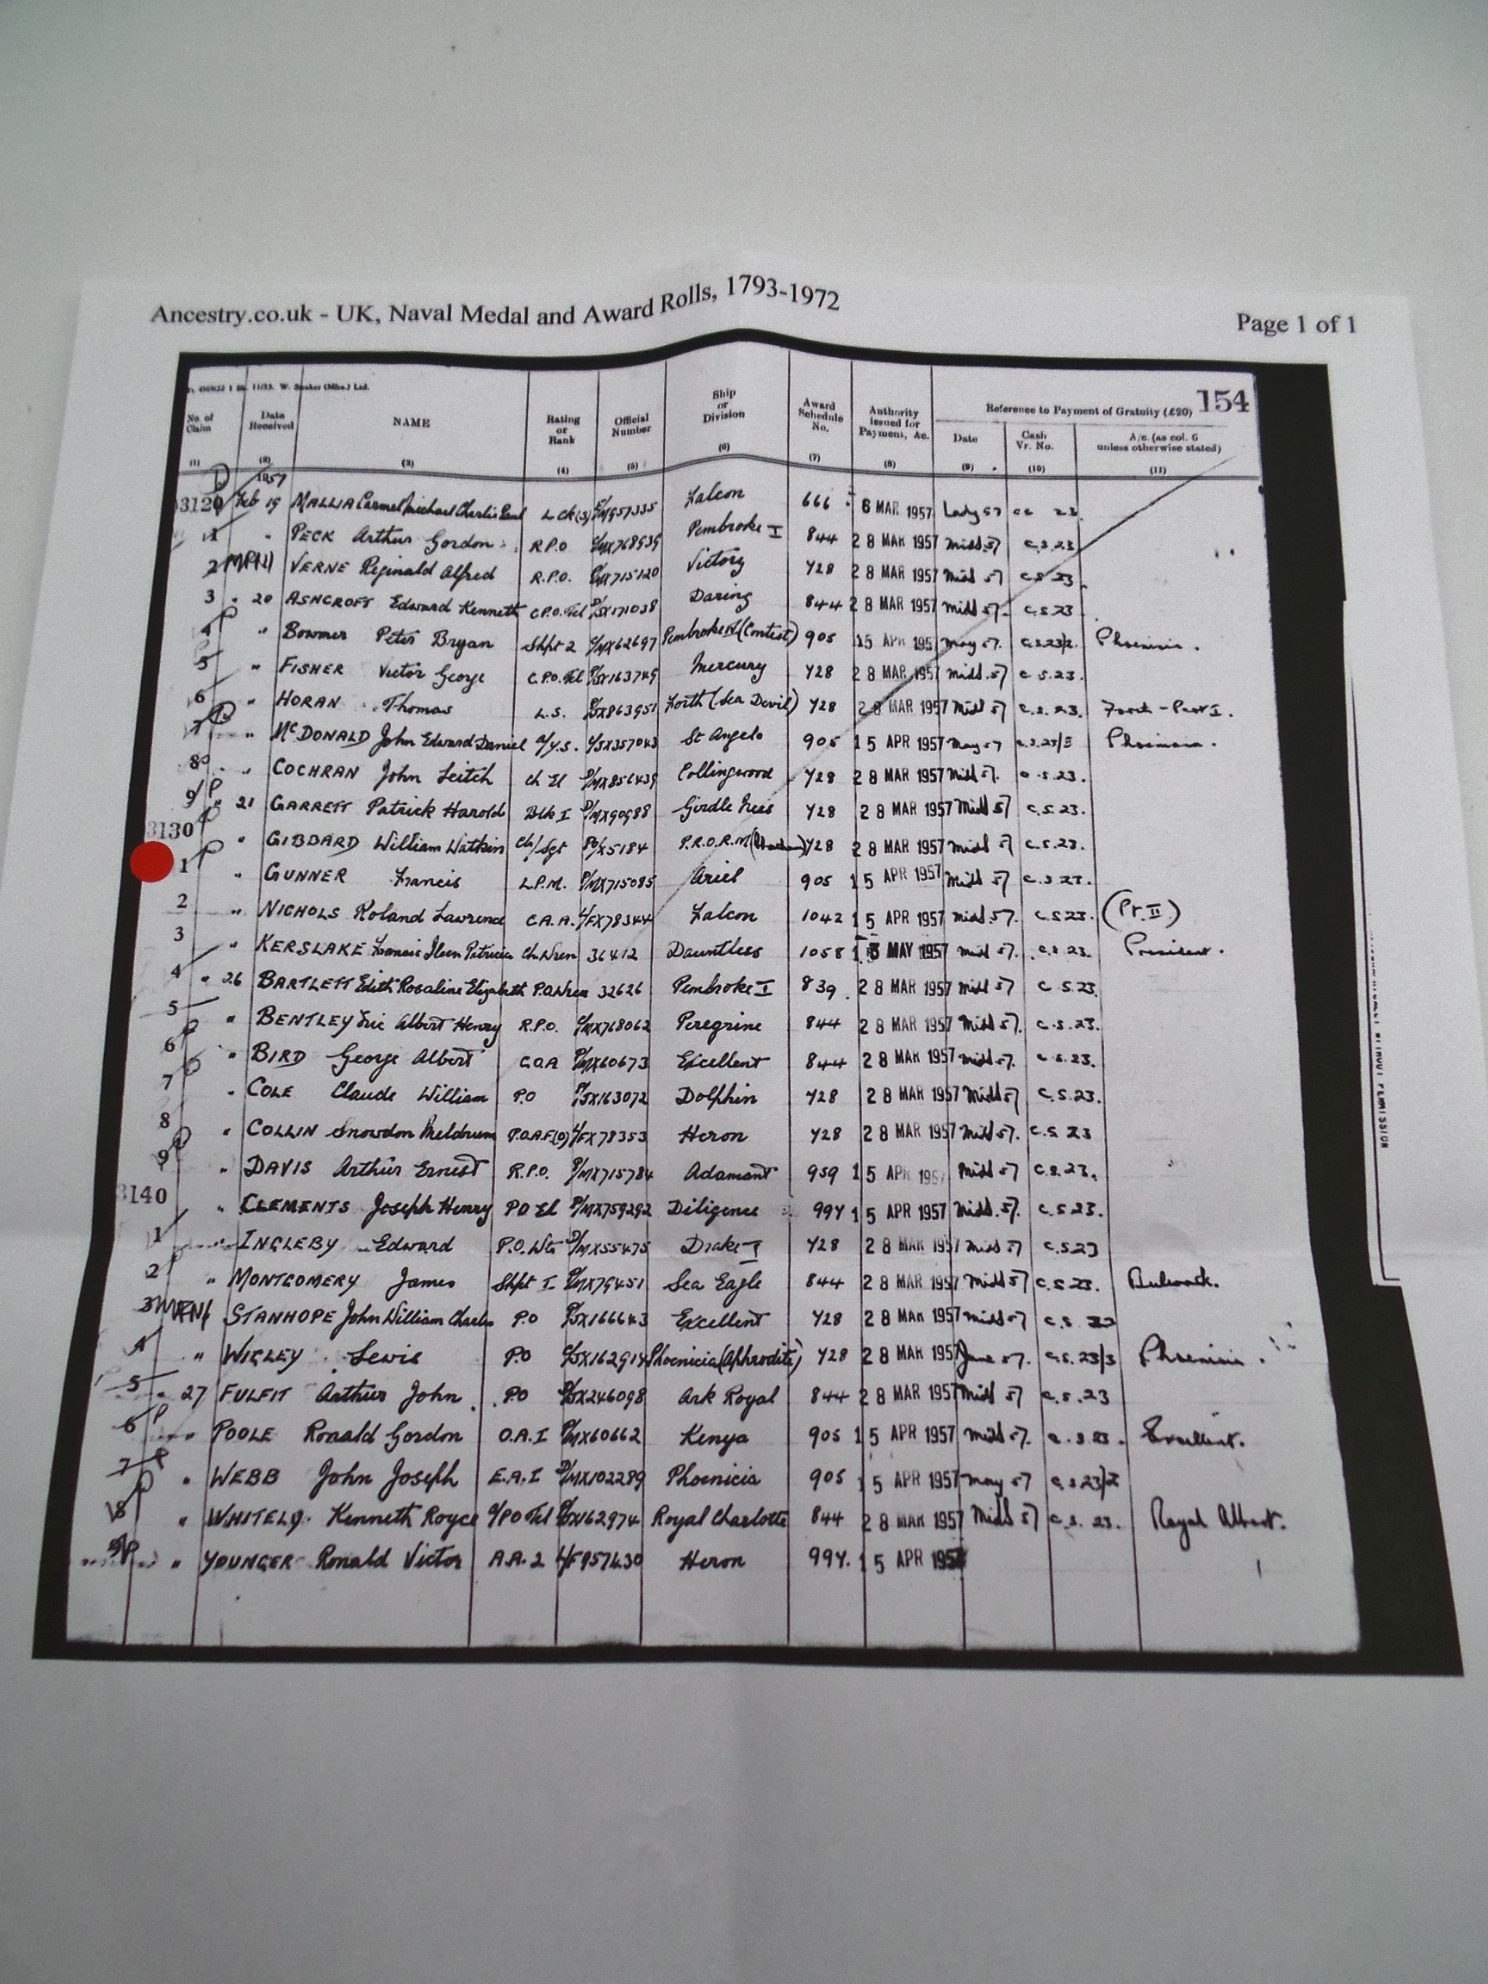 Ancestry.co.uk - UK, Naval Medal and Award Rolls, 1793-1972
Page 1 of 1
154
No of Claim Date Received NAME Rating or Rank Official Number Ship or Division Award Schedule No. Authority issued for Payment, &c. Reference to Payment of Gratuity (£20) Date Cash Vr. No. A/c. (as col. 6 unless otherwise stated)
(1) (2) (3) (4) (5) (6) (7) (8) (9) (10) (11)
1957
3120 Feb 19 MALLIA Carmel Michael Charles Paul Falcon 666 6 MAR 1957 Lady 57 23
1 " PECK Arthur Gordon R.P.O Pembroke I 844 28 MAR 1957 Midd 57 C.S.23
2 VERNE Reginald Alfred R.P.O. P/MX715120 Victory 728 28 MAR 1957 Midd 57 C.S.23
3 " 20 ASHCROFT Edward Kenneth C.P.O. Tel P/JX171038 Daring 844 28 MAR 1957 Midd 57 C.S.23
4 " Bowmer Peter Bryan Shpt 2 C/MX62697 (Contest) 905 15 APR 195 May 57. C.S.23/2 Phoenicia.
5 " FISHER Victor George C.P.O. Tel P/JX163749 Mercury 728 28 MAR 1957 Midd 57 C.S.23.
6 " HORAN Thomas L.S. Forth (Sea Devil) 728 28 MAR 1957 Midd 57 C.S.23. Forth - Part I.
7 " McDONALD John Edward Daniel St Angelo 905 15 APR 1957 May 57 C.S.23/3 Phoenicia.
8 " COCHRAN John Leitch Ch El P/MX856439 Collingwood 728 28 MAR 1957 Midd 57. C.S.23.
9 " 21 GARRETT Patrick Harold P/MX90988 Girdle Ness 728 28 MAR 1957 Midd 57 C.S.23.
3130 " GIBBARD William Watkin Po/X5184 P.R.O.R.M (Chatham) 728 28 MAR 1957 Midd 57 C.S.23.
1 " GUNNER Francis L.P.M. P/MX715085 Ariel 905 15 APR 1957 Midd 57 C.S.23.
2 " NICHOLS Roland Lawrence C.A.A. L/FX78344 Falcon 1042 15 APR 1957 Midd 57. C.S.23. (Pt. II)
3 " KERSLAKE Francis Ileen Patricia Ch Wren 36412 Dauntless 1058 MAY 1957 Midd 57. C.S.23. President.
4 " 26 BARTLETT Edith Rosaline Elizabeth P.O. Wren 32626 Pembroke I 839. 28 MAR 1957 Midd 57 C.S.23.
5 " BENTLEY Eric Albert Henry R.P.O. Peregrine 844 28 MAR 1957 Midd 57. C.S.23.
6 " BIRD George Albert C.O.A P/MX60673 Excellent 844 28 MAR 1957 Midd 57. C.S.23.
7 " COLE Claude William P.O P/JX163072 Dolphin 728 28 MAR 1957 Midd 57 C.S.23.
8 " COLLIN Snowdon Meldrum P.O.A.F(O) L/FX78353 Heron 728 28 MAR 1957 Midd 57. C.S 23
9 " DAVIS Arthur Ernest R.P.O. P/MX715784 Adamant 959 15 APR 1957 Midd 57 C.S.23.
3140 " CLEMENTS Joseph Henry P.O El P/MX759292 Diligence 994 15 APR 1957 Midd. 57. C.S.23.
1 INGLEBY Edward P.O. Wtr P/MX55475 Drake I 728 28 MAR 1957 Midd 57 C.S.23
2 " MONTGOMERY James Shpt I P/MX79451 Sea Eagle 844 28 MAR 1957 Midd 57 C.S.23. Bulwark.
3 STANHOPE John William Charles P.O P/JX166643 Excellent 728 28 MAR 1957 Midd 57 C.S. 23
4 " WIGLEY Lewis P.O Phoenicia (Aphrodite) 728 28 MAR 1957 June 57. C.S.23/3 Phoenicia.
5 " 27 FULFIT Arthur John P.O P/JX246098 Ark Royal 844 28 MAR 1957 Midd 57 C.S.23
6 " POOLE Ronald Gordon O.A.I P/MX60662 Kenya 905 15 APR 1957 Midd 57. C.S.23. Excellent.
7 " WEBB John Joseph E.A.I P/MX102289 Phoenicia 905 15 APR 1957 May 57 C.S.23/2
8 " WHITELY Kenneth Royce P/JX162974 Royal Charlotte 844 28 MAR 1957 Midd 57 C.S. 23. Royal Albert.
9 " YOUNGER Ronald Victor A.A.2 L/F957430 Heron 994. 15 APR 1957